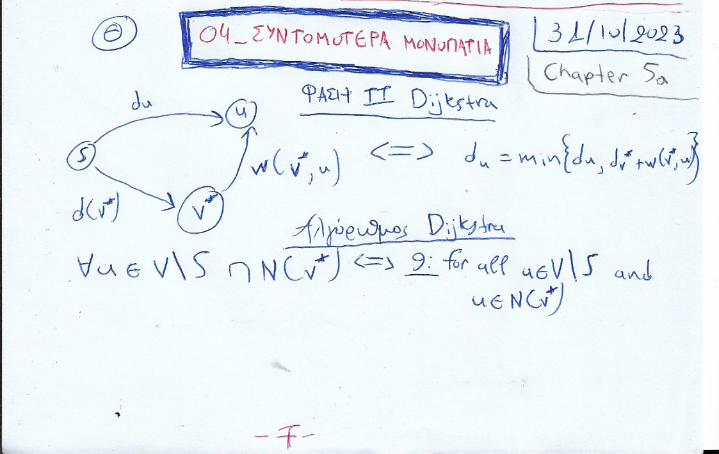 Θ
04_ΣΥΝΤΟΜΟΤΕΡΑ ΜΟΝΟΠΑΤΙΑ
31/10/2023
Chapter 5a
ΦΑΣΗ II Dijkstra
du
u
s
w(v*,u)
<=> du = min{du, dv*+w(v*,u)}
d(v*)
v*
Αλγόριθμος Dijkstra
∀u∈V\S ∩N(v*) <=> 9: for all u∈V\S and
u∈N(v*)
-7-